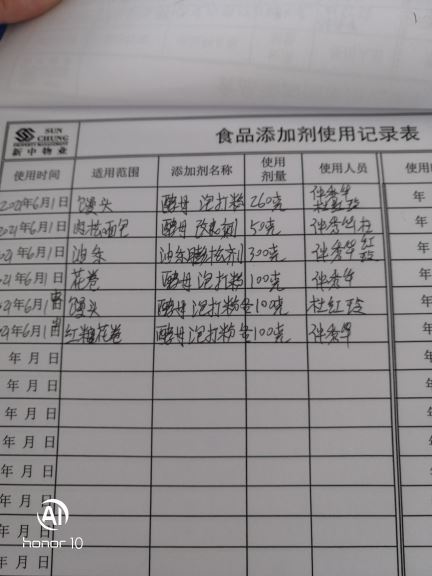 SUN CHUNG
PROPERTY MANAGEMENT
新中物业
食品添加剂使用记录表
使用时间 适用范围 添加剂名称 使用剂量 使用人员 使用时
2021年6月1日 馒头 酵母 泡打粉 260克 伴秀华 杜红玲 年
2021年6月1日 肉松面包 酵母 改良剂 50克 伴秀华 杜红玲 年
2021年6月1日 油条 油条膨松剂 300克 伴秀华 年
21年6月1日 花卷 酵母 泡打粉 100克 伴秀华 年
21年6月1日 馒头 酵母 泡打粉各100克 杜红玲 年
21年6月1日 红糖花卷 酵母 泡打粉各100克 伴秀华 年
年 月 日 年
年 月 日 年
年 月 日 年
年 月 日 年
年 月 日 年
年 月 日 年
年 月 日 年
年 月 日
AI
honor 10